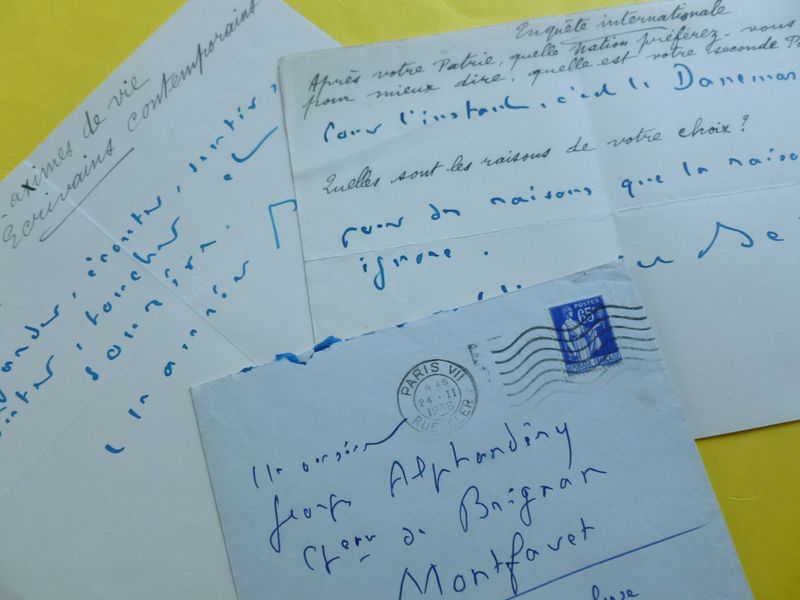 aximes de vie
Ecrivains contemporains
écouter, sentir,
toucher et
sourire.
Enquête internationale
Après votre Patrie, quelle Nation préférez-vous
pour mieux dire, quelle est votre seconde Pa
Pour l'instant, c'est le Danemar
Quelles sont les raisons de votre choix?
pour des raisons que la raiso
ignore.
POSTES
65c
REPUBLIQUE FRANÇAISE
PARIS VII
9 45
24 • II
1938
RUE CLER
Monsieur
Georges Alphandéry
Chem de Brignan
Montfavet